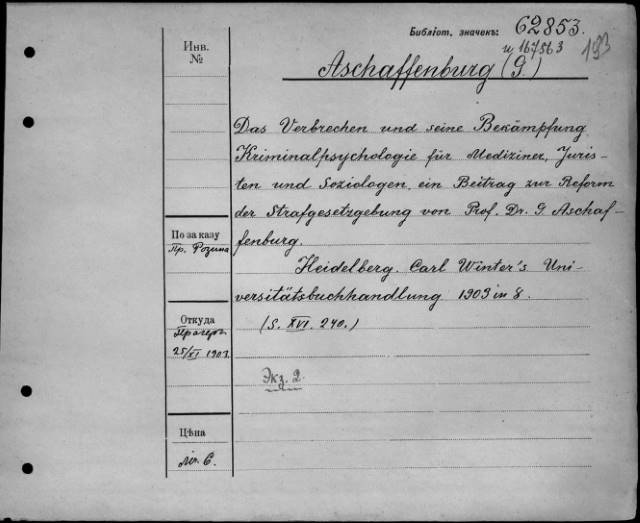 Библіот. значокъ: 62853.
и 167563
193
Инв.
№
Aschaffenburg (G.)
Das Verbrechen und seine Bekämpfung
Kriminalpsychologie für Mediziner, Juris-
ten und Soziologen, ein Beitrag zur Reform
der Strafgesetzgebung von Prof. Dr. G. Aschaf-
fenburg.
По заказу
Пр. Розина
Heidelberg. Carl Winter's Uni-
versitätsbuchhandlung 1903 in 8.
(S. XVI. 240.)
Откуда
Прагеръ
25/XI 1903.
Экз. 2.
Цѣна
6.